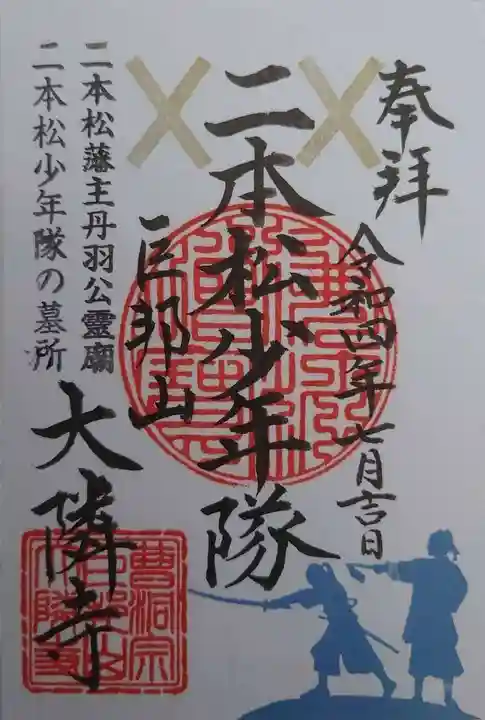 奉拝
令和四年七月吉日
二本松少年隊
巨邦山
大隣寺
二本松藩主丹羽公霊廟
二本松少年隊の墓所
曹洞宗